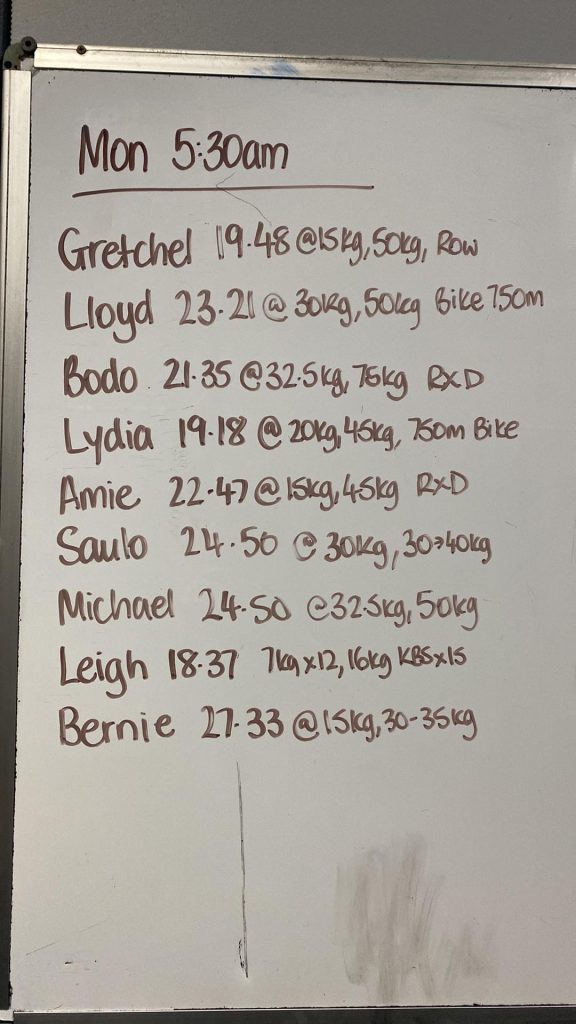 Mon 5:30am
Gretchel 19.48 @15kg, 50kg, Row
Lloyd 23.21 @ 30kg, 50kg Bike 750m
Bodo 21.35 @32.5kg, 75kg RXD
Lydia 19.18 @ 20kg, 45kg, 750m Bike
Amie 22.47 @15kg, 45kg RxD
Saulo 24.50 @ 30kg, 30→40kg
Michael 24.50 @32.5kg, 50kg
Leigh 18.37 7kg x12, 16kg KBS x15
Bernie 27.33 @15kg, 30-35kg